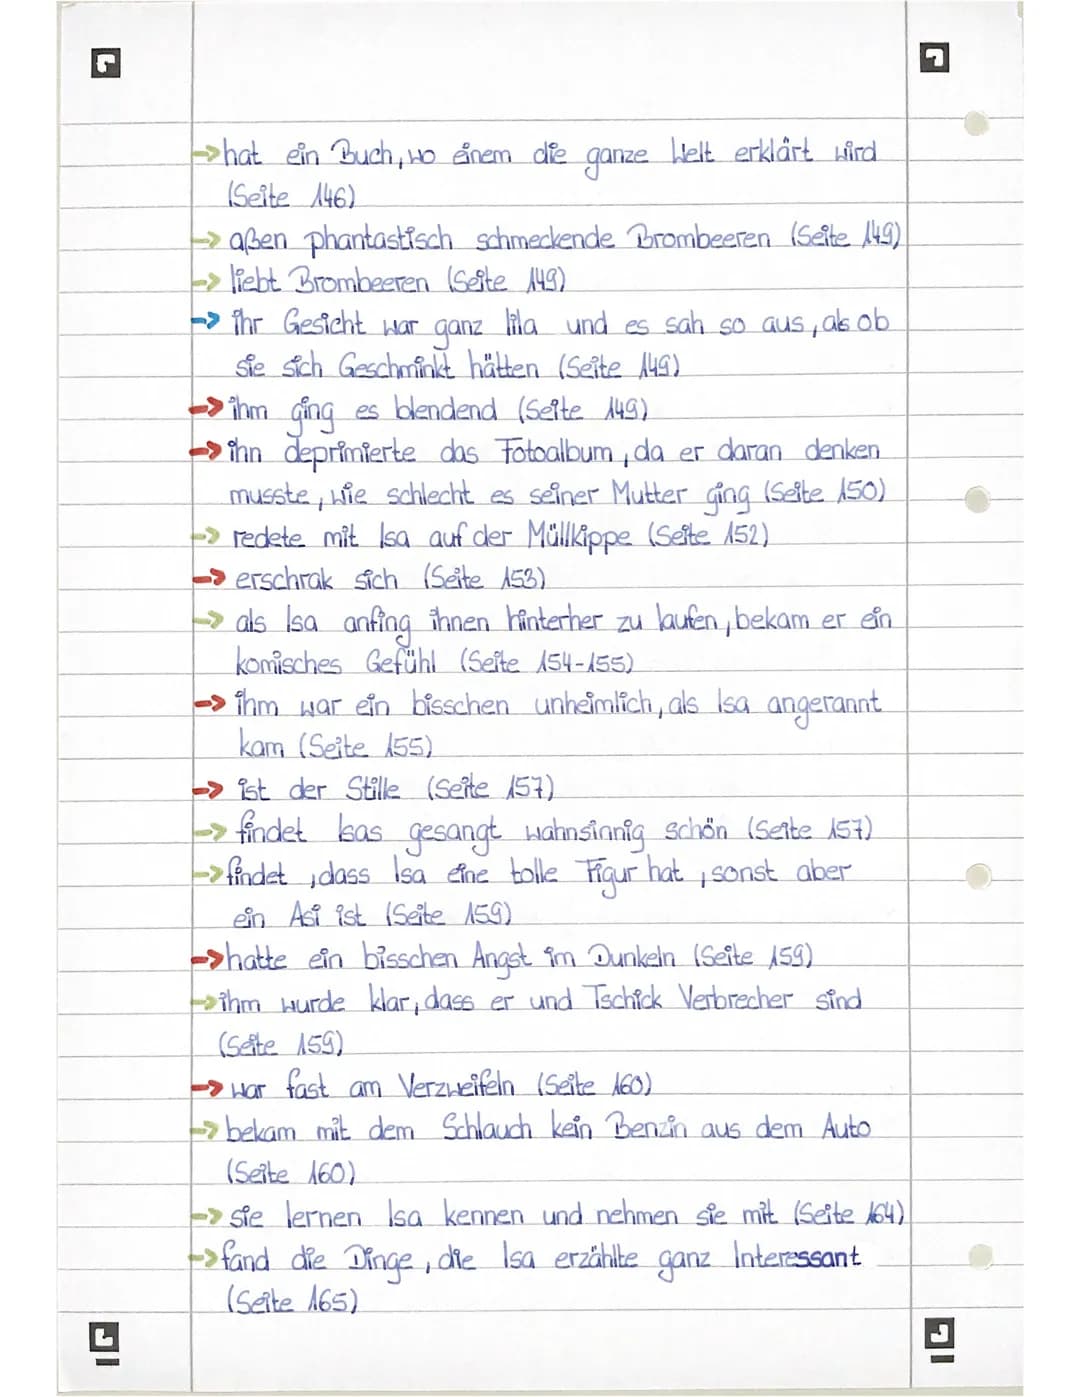 → hat ein Buch, wo einem die ganze Welt erklärt wird
(Seite 146)
→ aßen phantastisch schmeckende Brombeeren (Seite 149)
→ liebt Brombeeren (Seite 149)
→ ihr Gesicht war ganz lila und es sah so aus, als ob
sie sich Geschminkt hätten (Seite 149)
→ ihm ging es blendend (Seite 149)
→ ihn deprimierte das Fotoalbum, da er daran denken
musste, wie schlecht es seiner Mutter ging (Seite 150)
→ redete mit Isa auf der Müllkippe (Seite 152)
→ erschrak sich (Seite 153)
→ als Isa anfing ihnen hinterher zu laufen, bekam er ein
komisches Gefühl (Seite 154-155)
→ ihm war ein bisschen unheimlich, als Isa angerannt
kam (Seite 155)
→ ist der Stille (Seite 157)
→ findet Isas gesangt wahnsinnig schön (Seite 157)
→ findet, dass Isa eine tolle Figur hat, sonst aber
ein Asi ist (Seite 159)
→ hatte ein bisschen Angst im Dunkeln (Seite 159)
→ ihm wurde klar, dass er und Tschick Verbrecher sind
(Seite 159)
→ war fast am Verzweifeln (Seite 160)
→ bekam mit dem Schlauch kein Benzin aus dem Auto
(Seite 160)
→ sie lernen Isa kennen und nehmen sie mit (Seite 164)
→ fand die Dinge, die Isa erzählte ganz Interessant
(Seite 165)